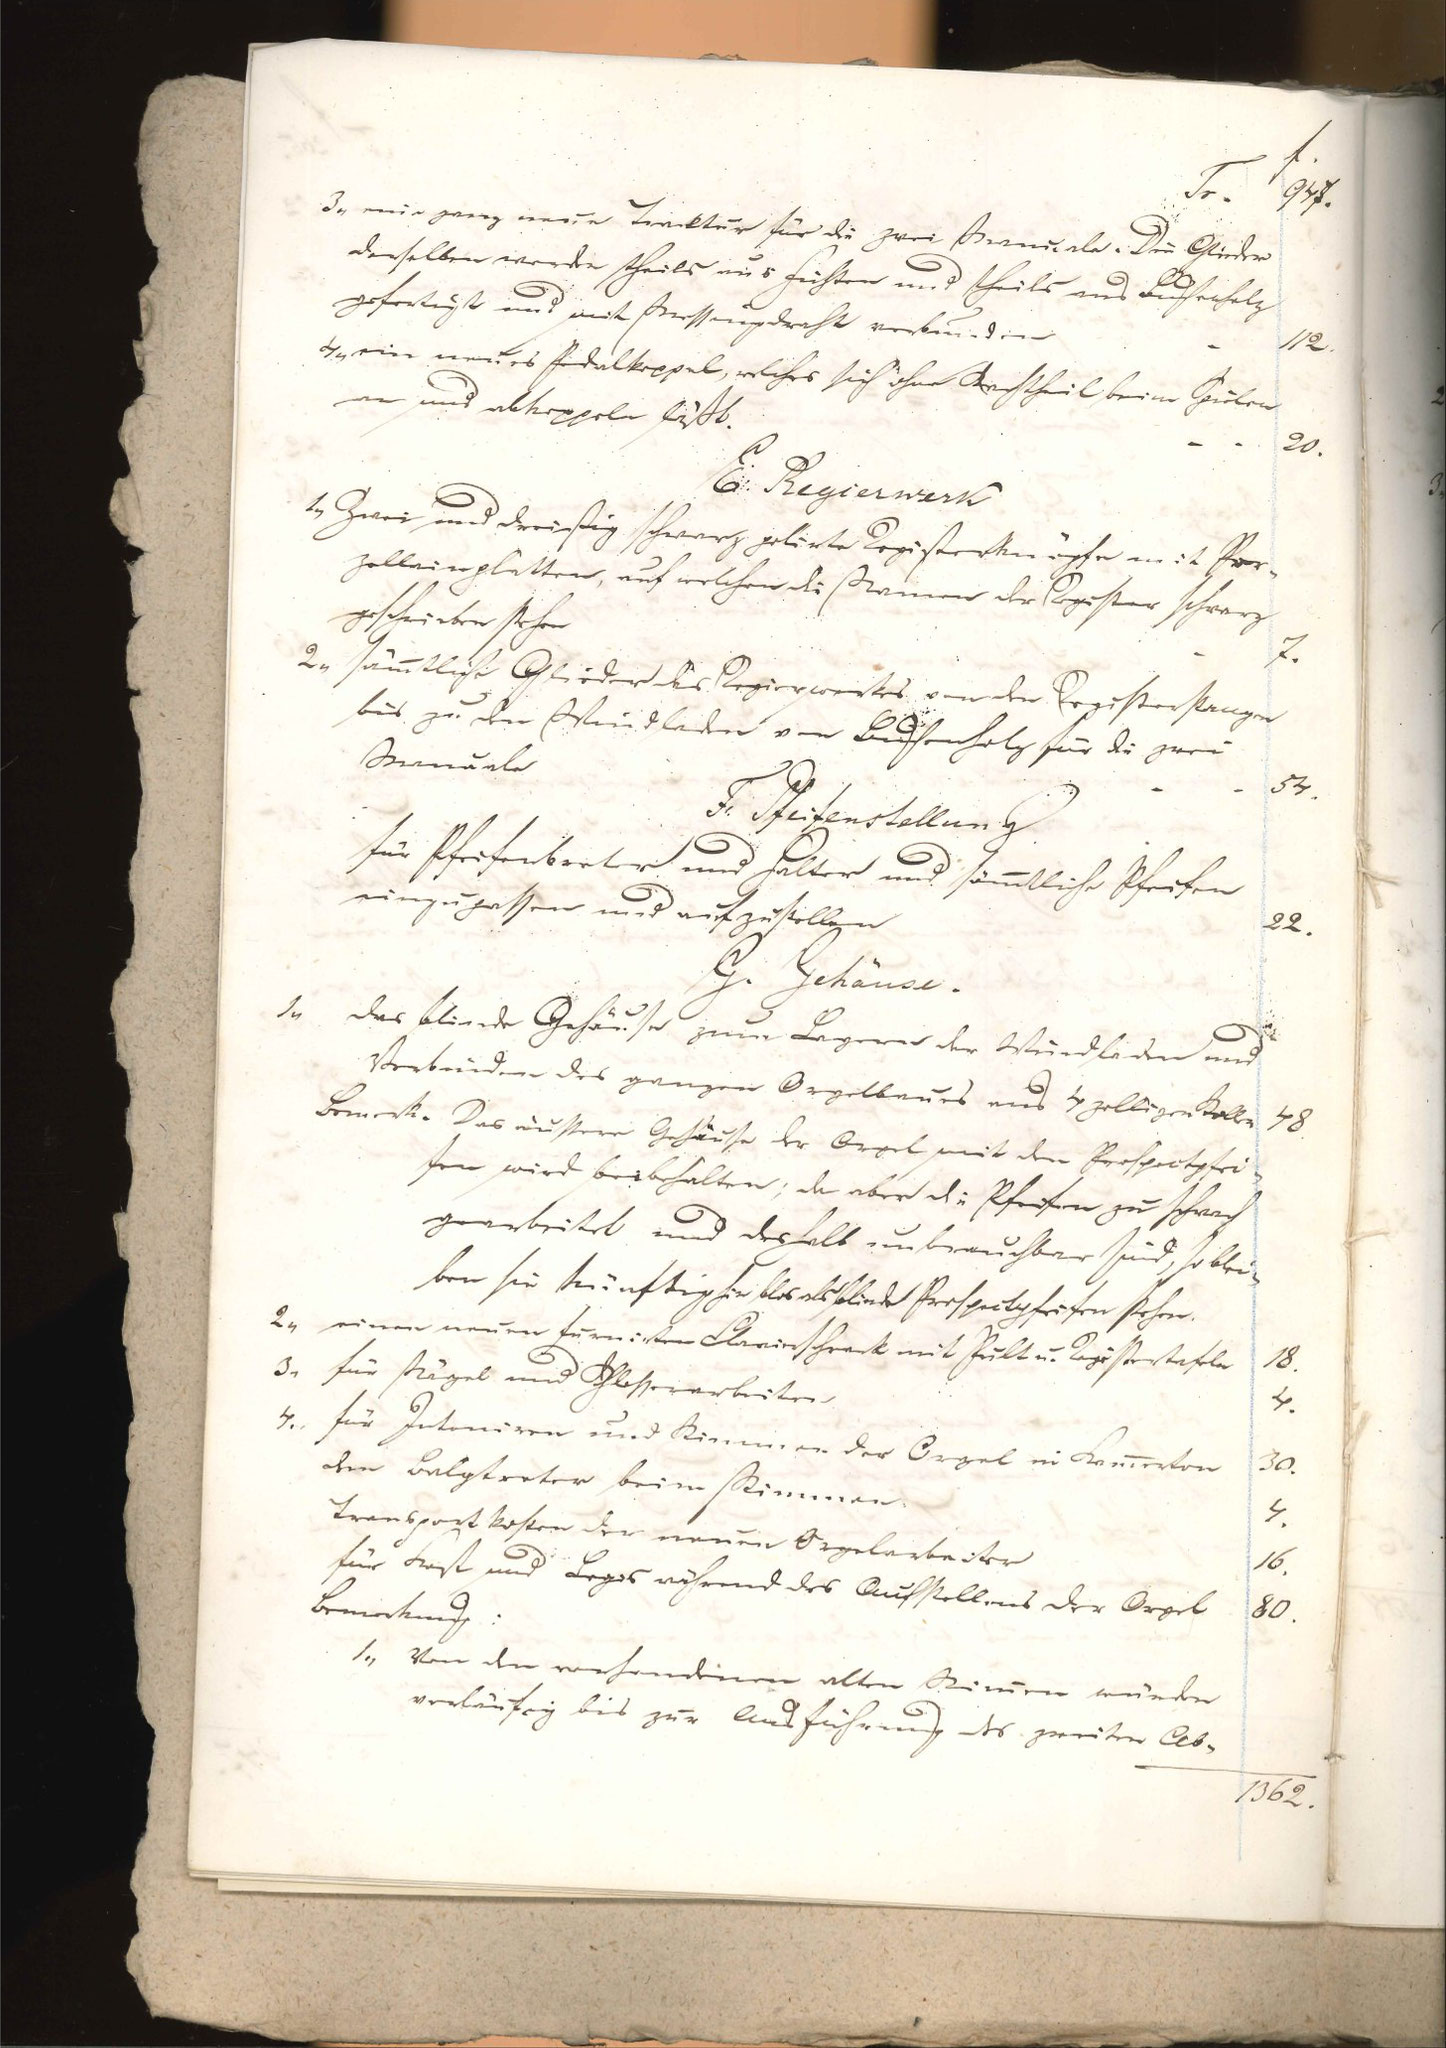 f.
Tr. 947.
3., eine ganz neue Tracktur für die zwei Manuale. Die Glieder
derselben werden theils aus Fichten und theils aus Buchenholz
gefertigt und mit Messingdraht verbunden - 112.
4., ein neues Pedalkoppel, welches sich ohne Nachtheil beim Spielen
an und abkoppeln läßt. - - 20.
E. Regierwerk
1., Zwei und dreißig schwarz polirte Registerknöpfe mit Por-
zellainplatten, auf welchen die Namen der Register schwarz
geschrieben stehen - 7.
2., sämtliche Glieder des Regierwerkes von den Registerstangen
bis zu den Windladen von Buchenholz für die zwei
Manuale - - 54.
F. Pfeifenstellung
für Pfeifenbretter und Halter und sämtliche Pfeifen
einzupassen und aufzustellen 22.
G. Gehäuse.
1., das blinde Gehäuse zum Lagern der Windladen und
Verbinden des ganzen Orgelbaues aus 4 zolligen 48
Bemerk. Das äußere Gehäuse der Orgel mit den Prospectpfei-
fen wird beibehalten; da aber die Pfeifen zu schwach
gearbeitet und deshalb unbrauchbar sind, so blei-
ben sie künftighin blos als blinde Prospectpfeifen stehen.
2., einen neuen furnirten Clavierschrank mit Pult u. Registertafeln 18.
3., für Nägel und Schlosserarbeiten 4.
4., für Intoniren und Stimmen der Orgel in Kammerton 30.
dem Balgtreter beim Stimmen. 4.
Transportkosten der neuen Orgelarbeiten 16.
für Kost und Logis während des Aufstellens der Orgel 80.
Bemerkung:
1., Von den vorhandenen alten Stimmen würden
vorläufig bis zur Ausführung des zweiten Ab-
1362.